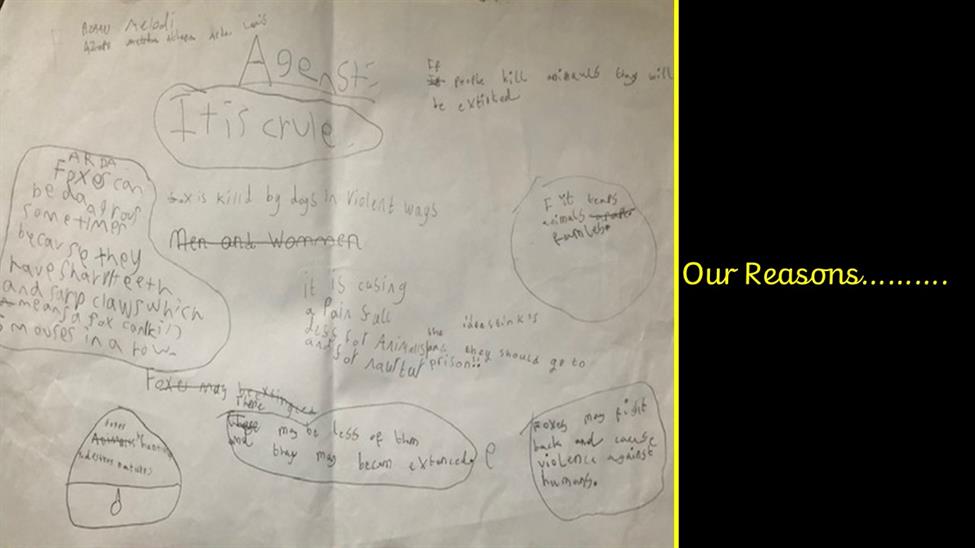 Melodi
Agenst:
It is crule
If
people kill animals they will
be extinked
ARDA
Foxes can
be
sometimes
because they
have sharp teeth
and sarp claws which
means a fox can kill
5 mouses in a row.
fox is killd by dogs in violent ways
Men and Wommen
F it tears
animals
it is cusing
a Pain full
dess for Animals
and for
the idea stink's
they should go to
prison!!
Foxes may be extingued
There
may be less of them
and they may becom extenced.
e
Foxes
hunting
Foxes may fight
back and cause
violence against
humans.
Our Reasons..........